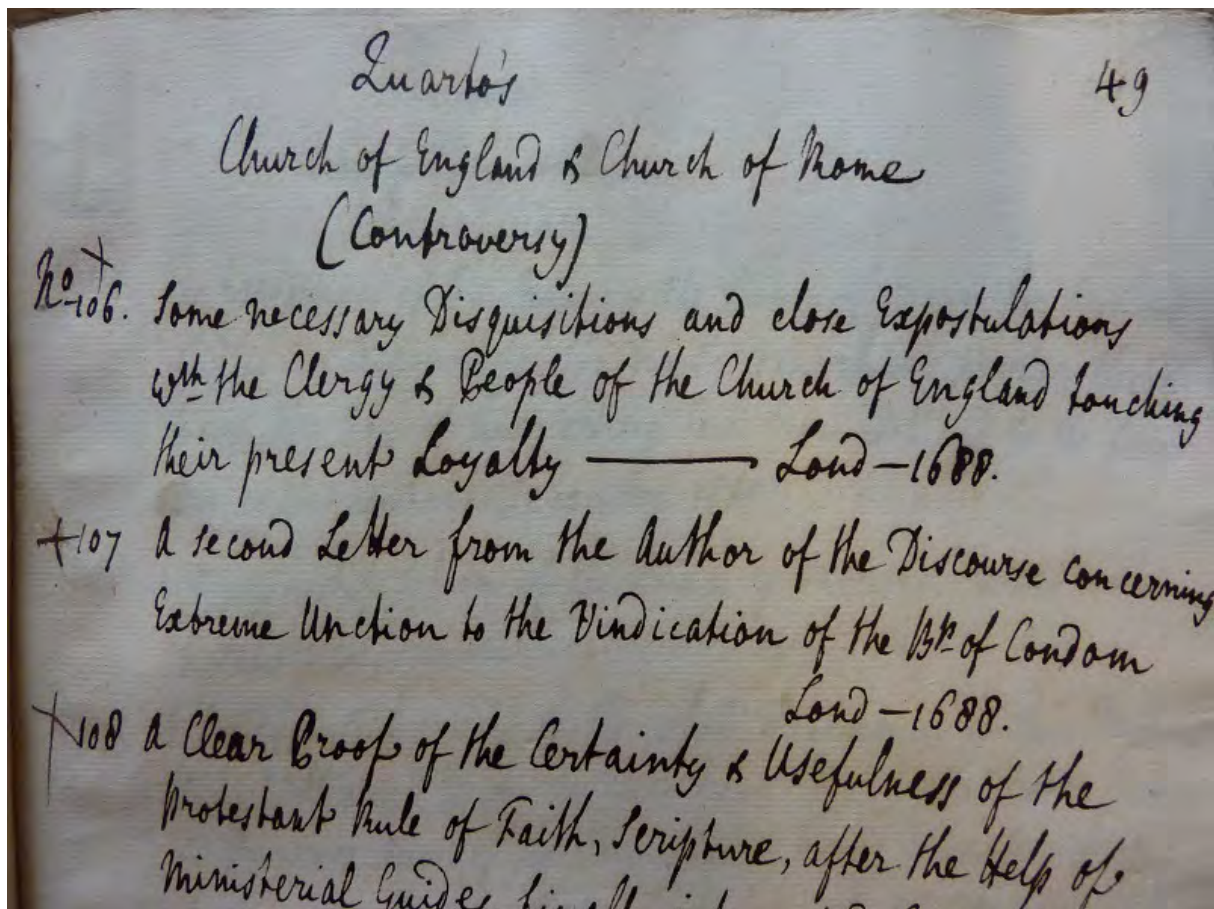 Quarto's
49
Church of England & Church of Rome
(Controversy)
No 106. Some necessary Disquisitions and close Expostulations
wth the Clergy & People of the Church of England touching
their present Loyalty — Lond – 1688.
107 A second Letter from the Author of the Discourse concerning
Extreme Unction to the Vindication of the Bp. of Condom
Lond – 1688.
108 A Clear Proof of the Certainty & Usefulness of the
Protestant Rule of Faith, Scripture, after the Help of
Ministerial Guides